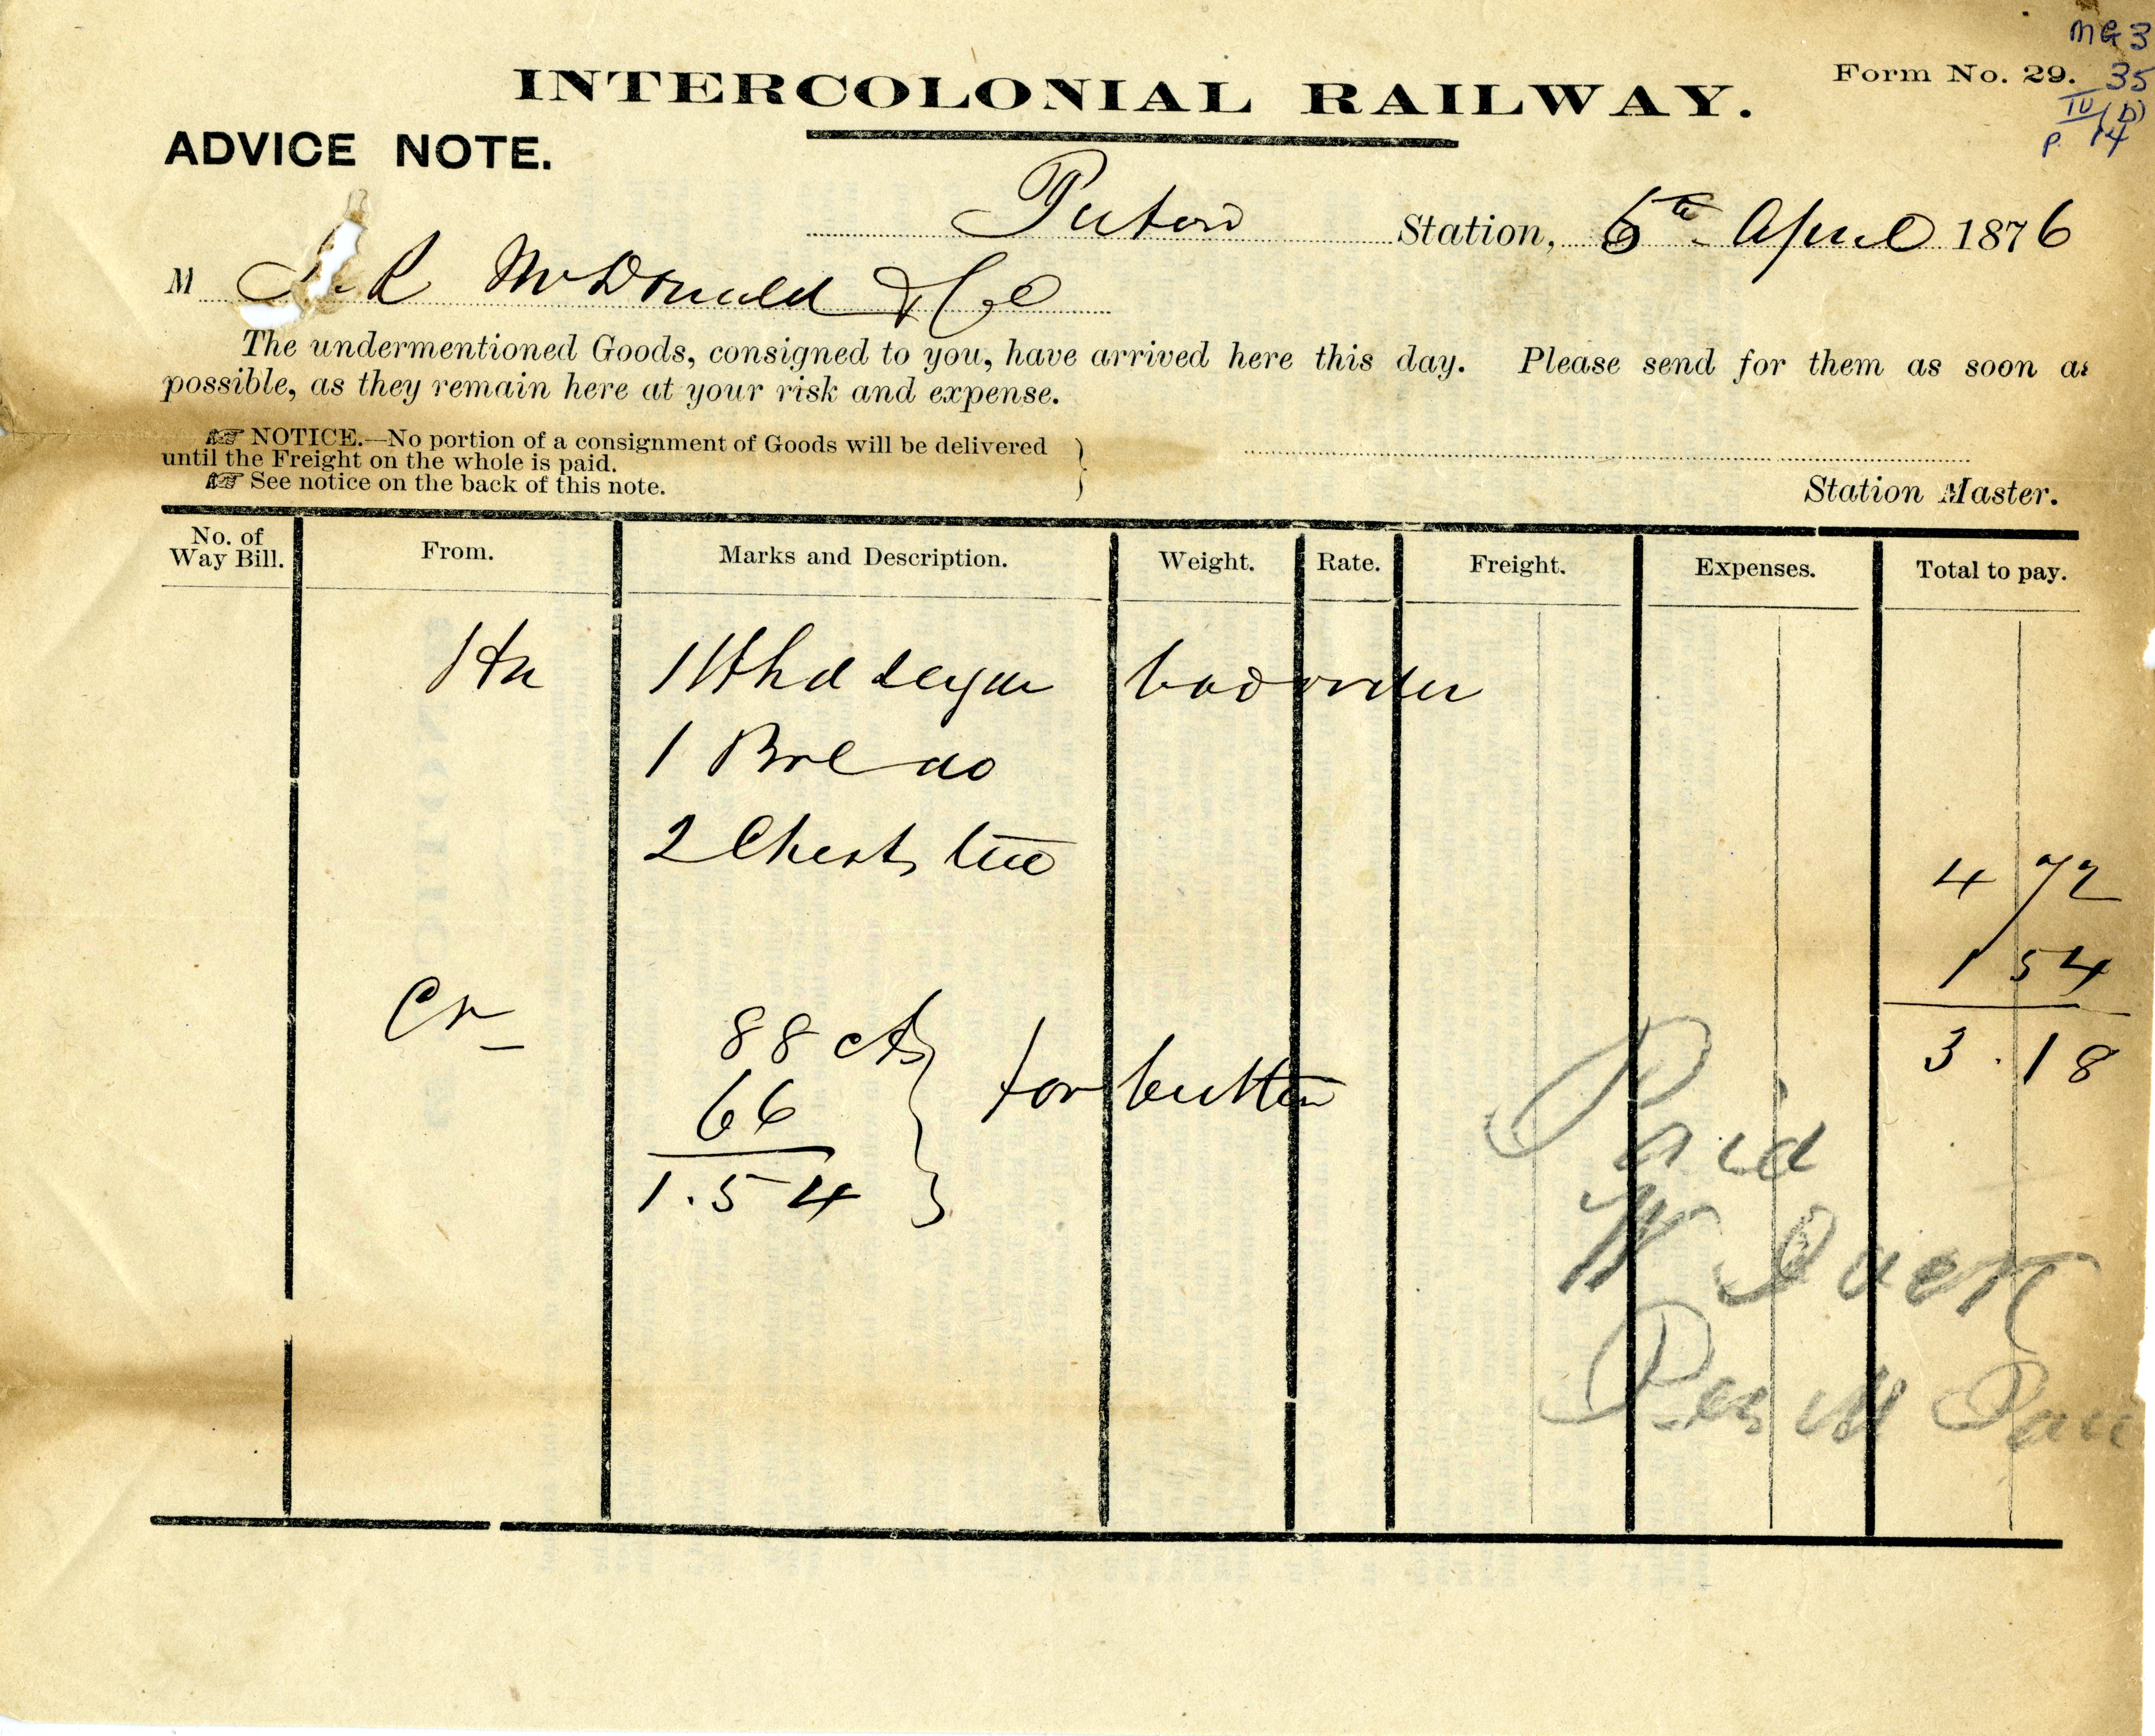 MG 3
35
IV (b)
p. 14
Form No. 29.
INTERCOLONIAL RAILWAY.
ADVICE NOTE.
Pictou Station, 6th April 1876
M R McDonald & Co
The undermentioned Goods, consigned to you, have arrived here this day. Please send for them as soon as
possible, as they remain here at your risk and expense.
☞ NOTICE.—No portion of a consignment of Goods will be delivered
until the Freight on the whole is paid.
☞ See notice on the back of this note.
Station Master.
No. of Way Bill. From. Marks and Description. Weight. Rate. Freight. Expenses. Total to pay.
Hx 1 Hhd sugar bad order
1 Brl do
2 Chests tea
4 72
1 54
3.18
Cr 88 cts
66 for butter
1.54
Paid
W
Per M